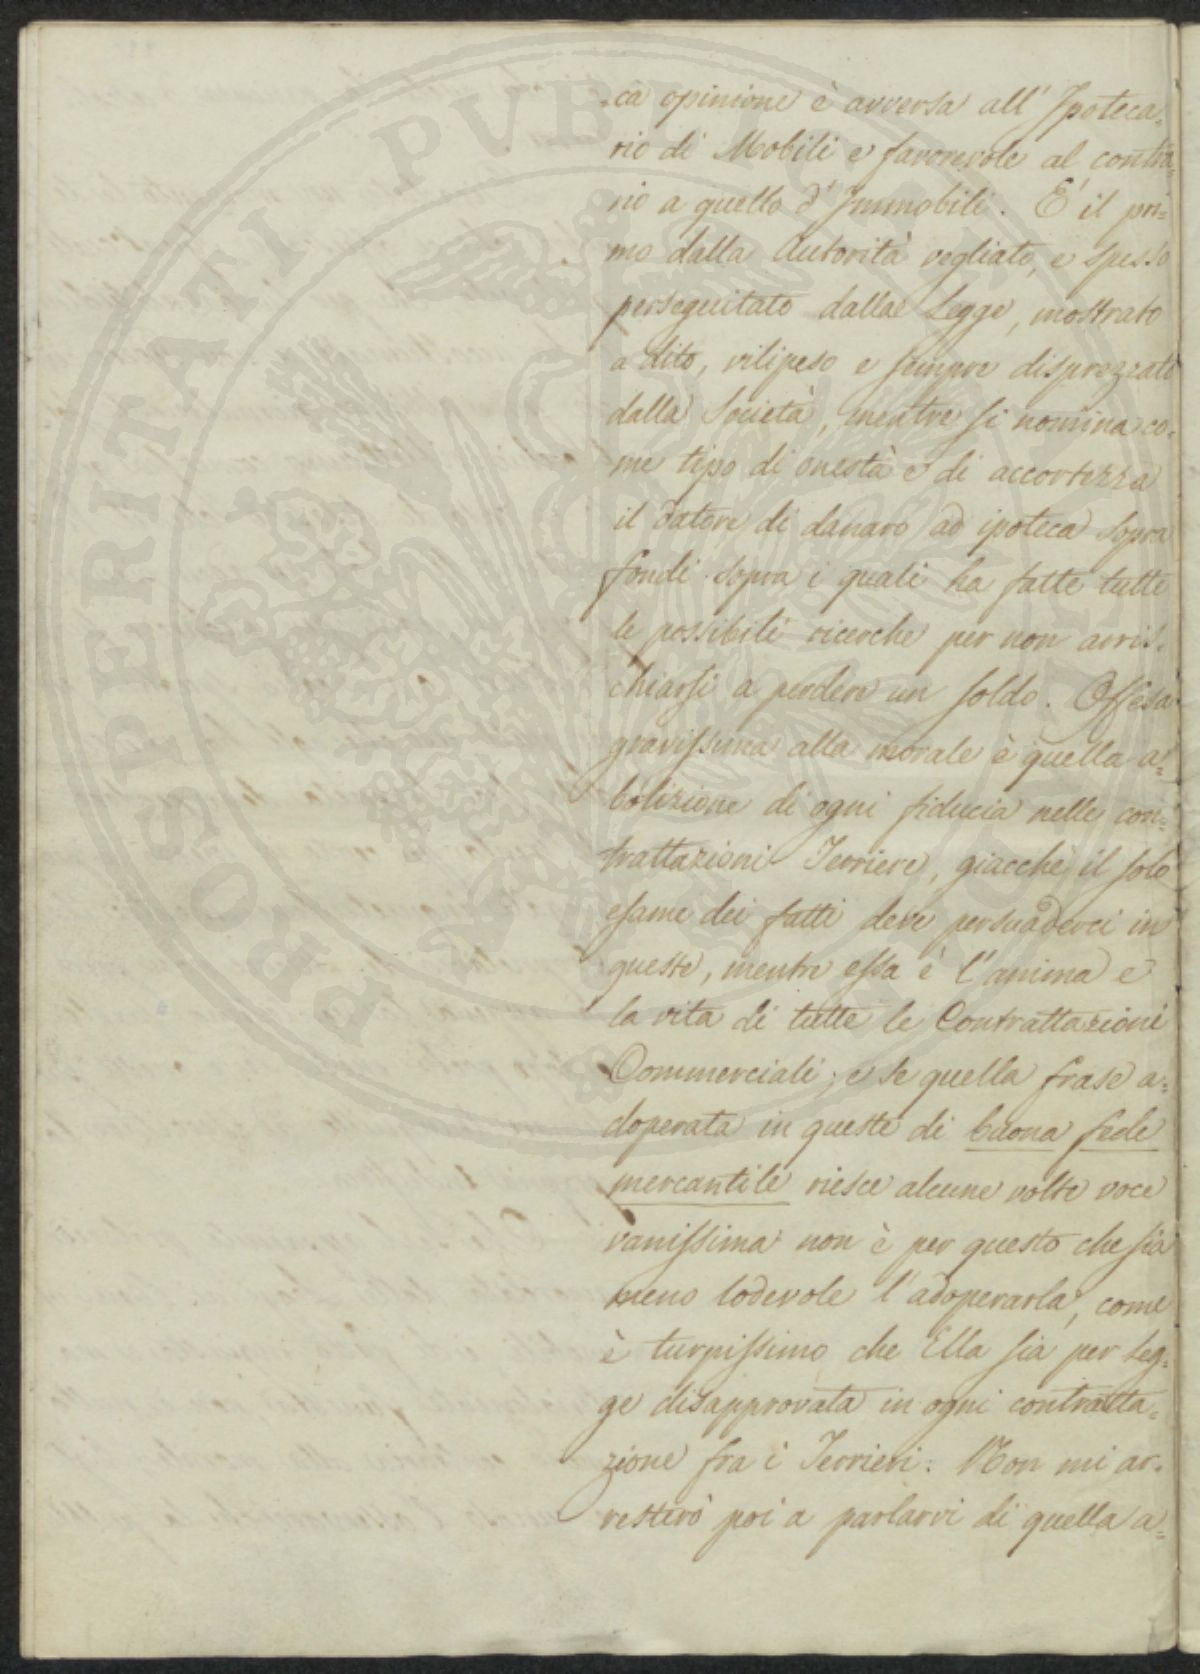 =ca opinione è avversa all' Ipoteca=
rio di Mobili e favorevole al contra=
rio a quello d' Immobili. E' il pri=
mo dalla Autorità vegliato, e spesso
perseguitato dalla Legge, mostrato
a dito, vilipeso e sempre disprezzato
dalla Società, mentre si nomina co=
me tipo di onestà e di accortezza
il datore di danaro ad ipoteca sopra
fondi sopra i quali ha fatte tutte
le possibili ricerche per non arris=
chiarsi a perdere un soldo. Offesa
gravissima alla morale è quella a=
bolizione di ogni fiducia nelle con=
trattazioni Terriere, giacchè il solo
esame dei fatti deve persuaderci in
queste, mentre essa è l'anima e
la vita di tutte le Contrattazioni
Commerciali; e se quella frase a=
doperata in queste di buona fede
mercantile riesce alcune volte voce
vanissima non è per questo che sia
meno lodevole l'adoperarla, come
è turpissimo che Ella sia per Leg=
ge disapprovata in ogni contratta=
zione fra i Terrieri. Non mi ar=
resterò poi a parlarvi di quella a=
PROSPERITATI PVBLICAE